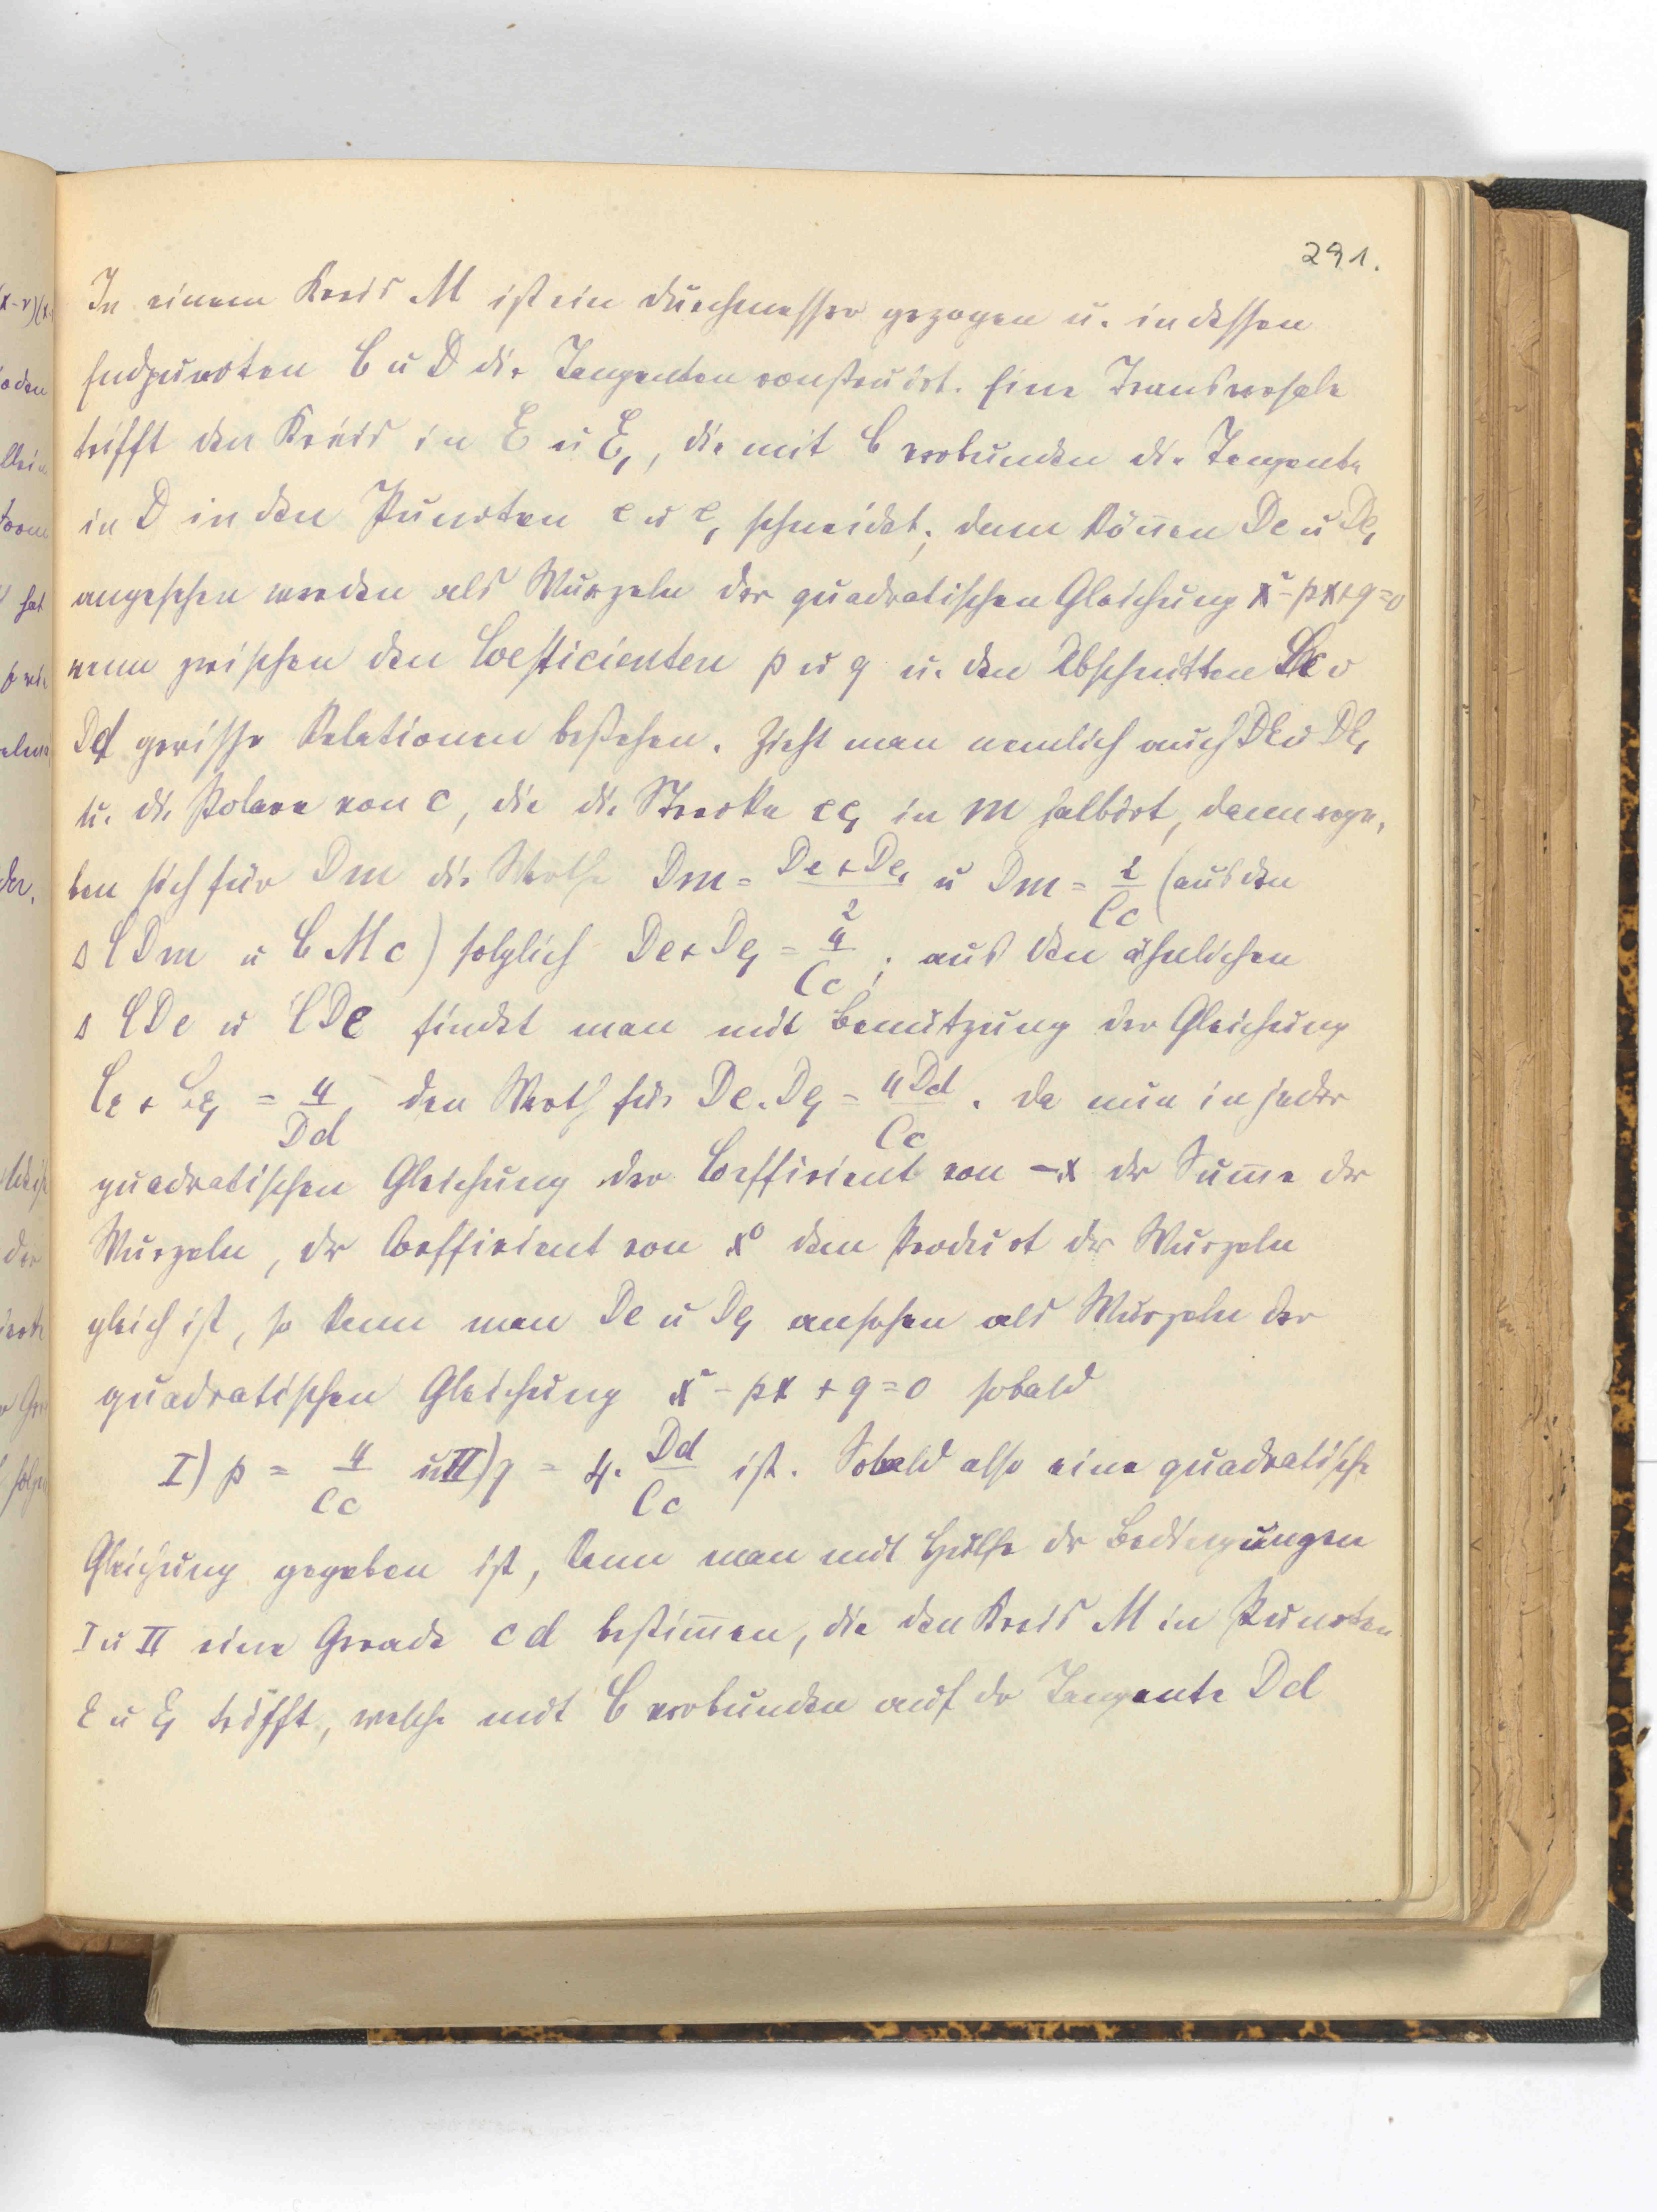 291.
In einem Kreis M ist ein Durchmesser gezogen u. in dessen
Endpuncten C u D die Tangenten construirt. Eine Transversale
trifft den Kreis in E u E₁, die mit C verbunden die Tangente
in D in den Puncten e u e₁ schneidet; dann können De u De₁
angesehen werden als Wurzeln der quadratischen Gleichung x² - px + q = 0
wenn zwischen den Coefficienten p u q u. den Abschnitten Cc u
Dd gewisse Relationen bestehen. Zieht man nemlich auch DE u DE₁
u. die Polare von c, die die Strecke ee₁ in m halbirt, dann erge-
ben sich für Dm die Werthe Dm = (De + De₁)/2 u Dm = 2/Cc (aus den
Δ CDm u CMc) folglich De + De₁ = 4/Cc; aus den ähnlichen
Δ CDe u CDε findet man mit Benutzung der Gleichung
Cε + Cε₁ = 4/Dd den Werth für De . De₁ = 4Dd/Cc. Da nun in jeder
quadratischen Gleichung der Coefficient von -x der Sum̄e der
Wurzeln, der Coefficient von x⁰ dem Product der Wurzeln
gleich ist, so kann man De u De₁ ansehen als Wurzeln der
quadratischen Gleichung x² - px + q = 0 sobald
I) p = 4/Cc u II) q = 4. Dd/Cc ist. Sobald also eine quadratische
Gleichung gegeben ist, kann man mit Hülfe der Bedingungen
I u II eine Gerade cd bestim̄en, die den Kreis M in Puncten
E u E₁ trifft, welche mit C verbunden auf der Tangente Dd